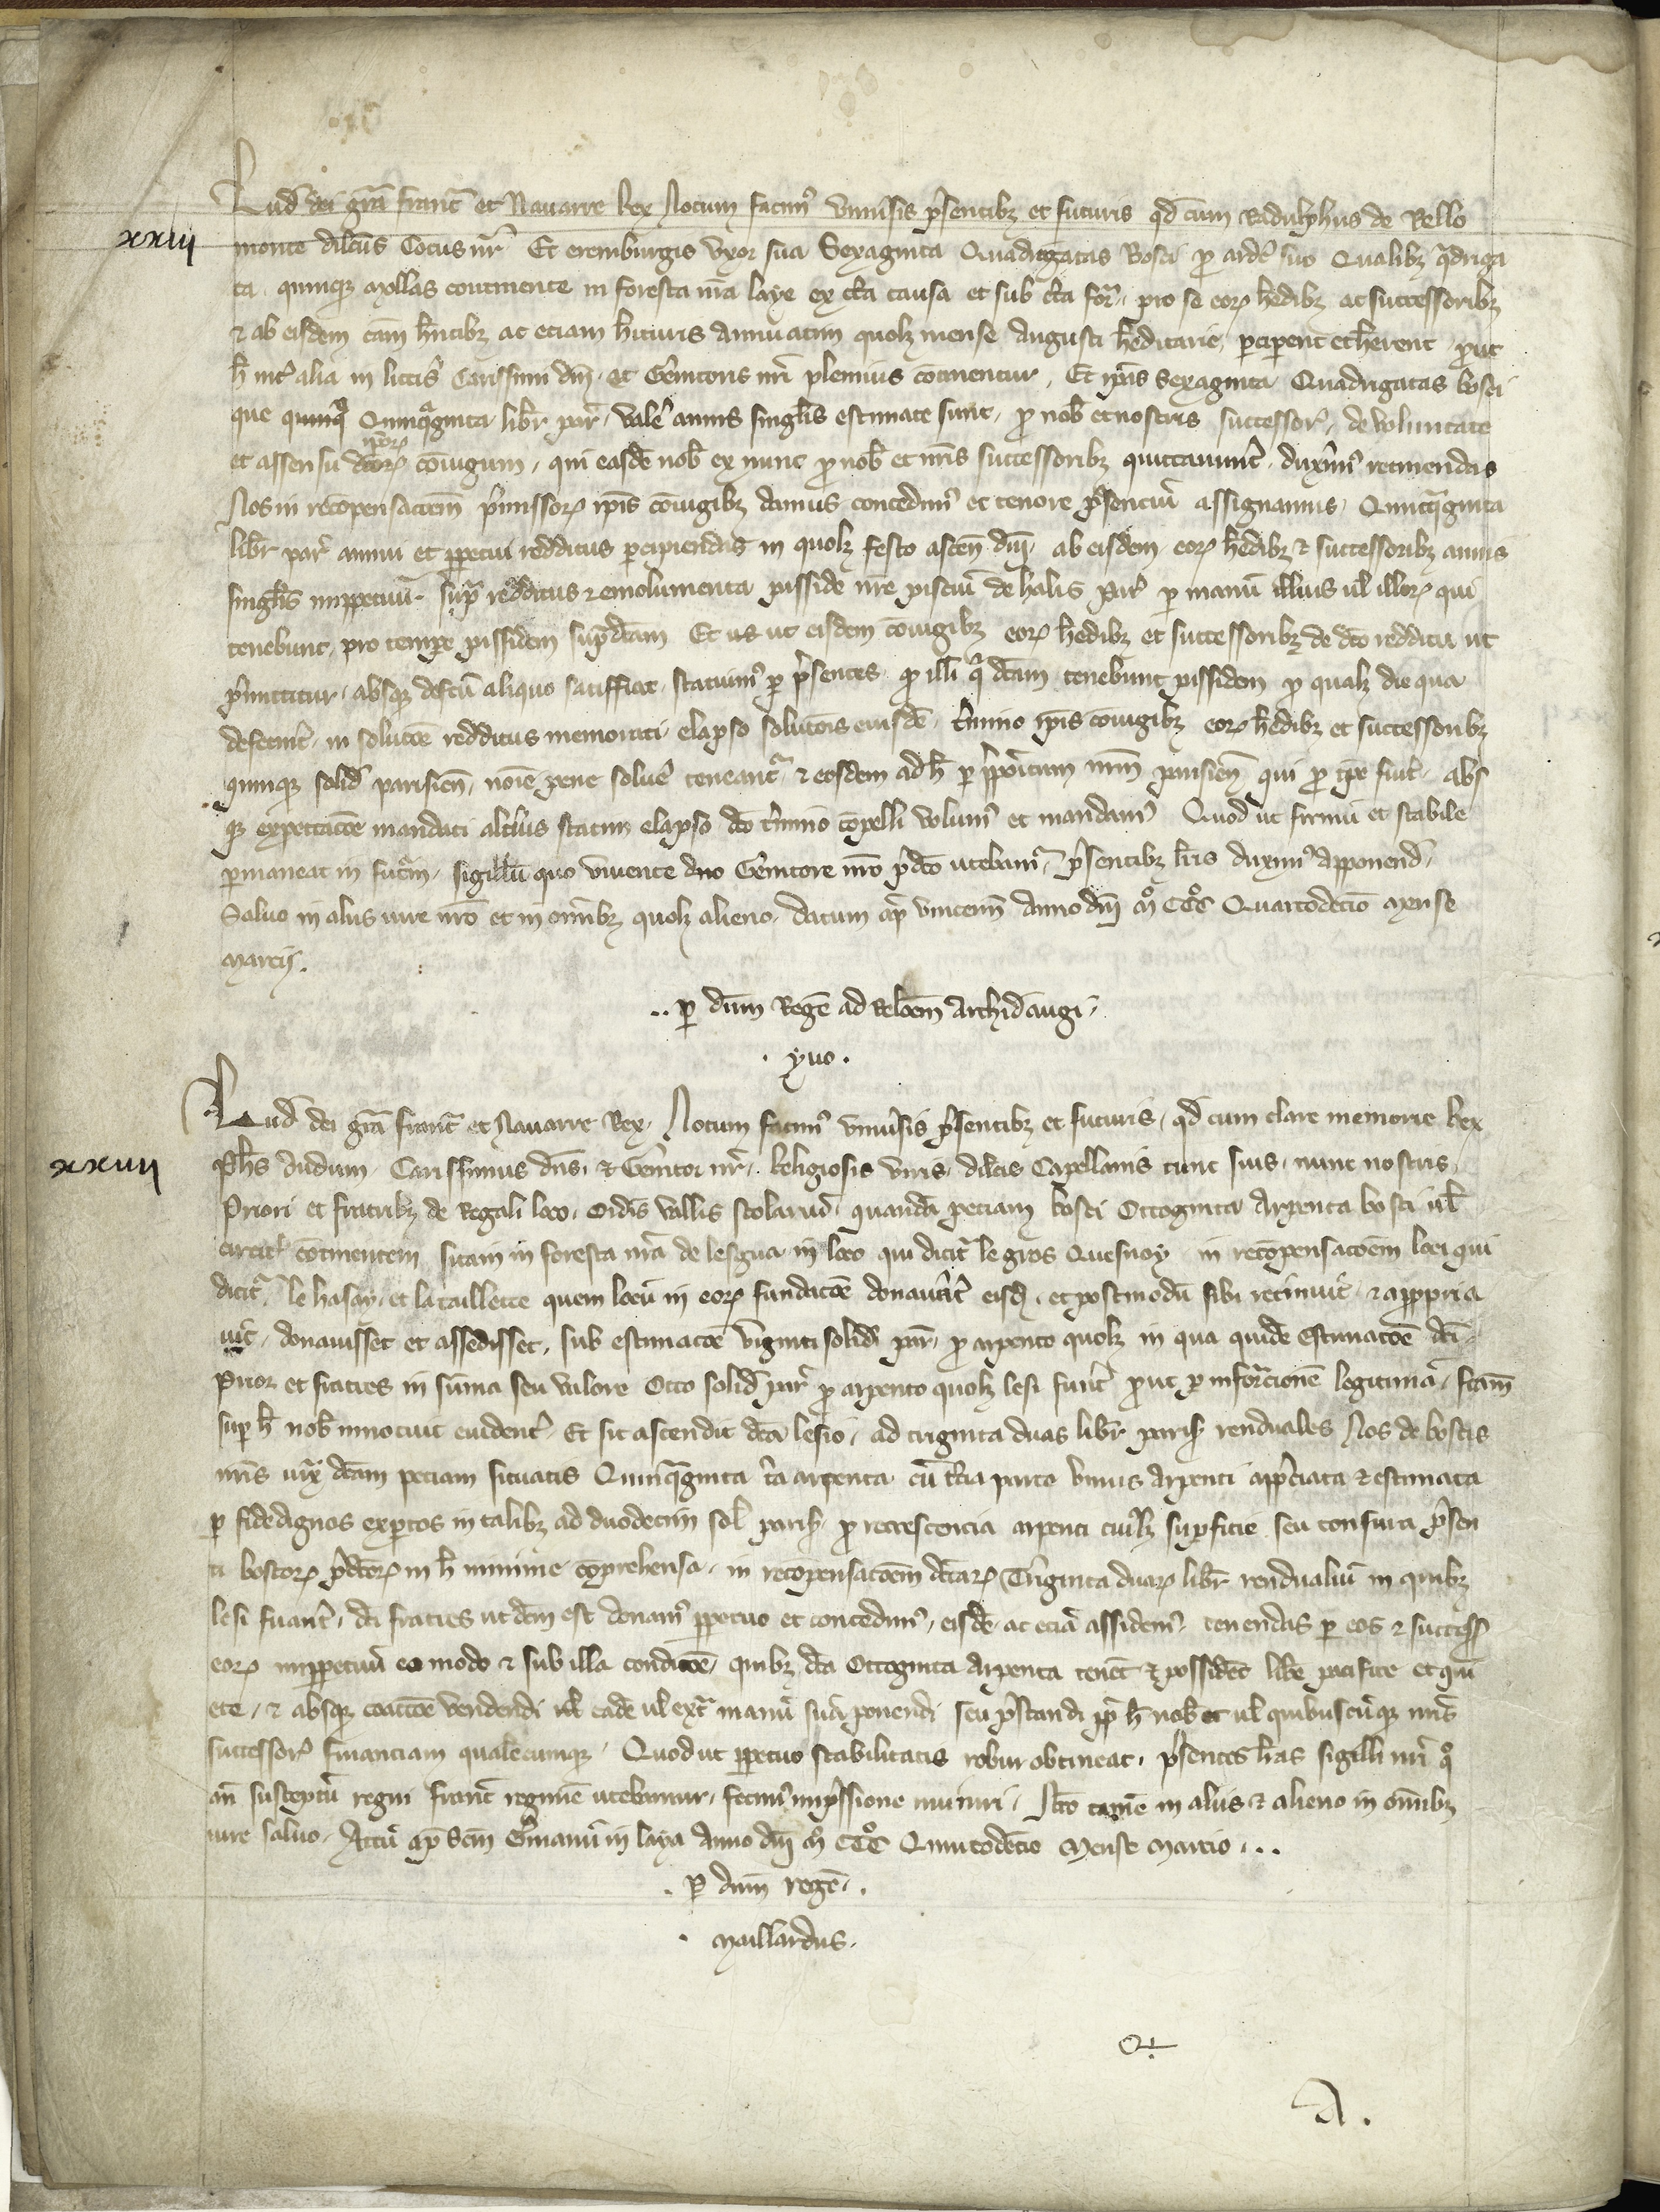 Lud dei gra franc et Nauarre Rex Notum facim9 vniu'sis p'sentib3 et futuris qd cum Radulphus de Bello
xxiii monte dilcus Cocus nr Et eremburgis vxor sua Sexaginta Quadrigatas Bosci p arde suo Qualib3 qdriga
ta quinq3 mollas continente in foresta nra laye ex cta causa et sub cta for pro se eor h'edib3 ac successorib3
& ab eisdem cam hntib3 ac etiam hituris annuatim quol3 mense Augusti h'editarie perciperent et h'erent prout
h int' alia in litt'is Carissimi dni et Genitoris nri plenius continentur Et ipas Sexaginta Quadrigatas bosci
que Quinqaginta libr par vale annis singlis estimate sunt p nob et nostris successor de voluntate
et assensu dcor ipor coniugum qui easde nob ex nunc p nob et nris successorib3 quittauerunt duxim9 retinendas
Nos in recopensacoem p'missor ipis coniugib3 damus concedim9 et tenore p'senciu assignamus Quinqaginta
libr par annui et ppetui redditus percipiendas in quol3 festo ascen dni ab eisdem eor h'edib3 & successorib3 annis
singlis imppetuu sup redditus & emolumenta pisside nre pisciu de halis par p manu illius ul illor qui
tenebunt pro tempe pissidem supdcam Et us ut eisdem coniugib3 eor h'edib3 et successorib3 de dco redditu ut
p'mittitur absq3 defcu aliquo satiffiat statuim9 p p'sentes q illi q dcam tenebunt pissidem p qual3 die qua
defecerint in solucoe redditus memorati elapso solucois eiusde t'mino ipis coniugib3 eor h'edib3 et successorib3
quinq3 solid parisien noie pene solue teneant & eosdem ad h p p'positum nrm parisien qui p tpe fuit abs
q3 expectacoe mandati alt'ius statim elapso dco t'mino copelli volum9 et mandam9 Quod ut firmu et stabile
permaneat in futm sigillu quo viuente dno Genitore nro p'dco utebam p'sentib3 lris duxim9 apponend
Saluo in aliis iure nro et in omib3 quol3 alieno datum ap vincenn Anno dni Mo CCCo Quartodecio Mense
Marcij.
.. p dnm Rege ad Relcoem Archid augi
. yuo .
Lud dei gra franc et Nauarre Rex Notum facim9 vniu'sis p'sentib3 et futuris qd cum clare memorie Rex
xxiiii Phs dudum Carissimus dns & Genitor nr Religiosis viris dilcis Capellanis tunc suis nunc nostris
Priori et fratrib3 de Regali loco ordis vallis scolariu quanda peciam bosci Octoginta Arpenta bosci ul
circit' continentem sitam in foresta nra de lesgua in loco qui dicit le gros Quesnoy in recopensacoem loci qui
dicit le hasay et la taillette quem locu in eor fundacoe donauit eisd et postmodu sibi retinuit & appropria
uit donauisset et assedisset sub estimacoe viginti solid par p arpento quol3 in qua quide estimacoe dci
Prior et fratres in suma seu valore Octo solid par p arpento quol3 lesi funt prout p informacionem legitima fcam
sup h nob innotuit euident' Et sic ascendit dca lesio ad triginta duas libr paris renduales Nos de boscis
nris iux dcam peciam situatis Quinqaginta t'a arpenta cu t'cia parte vnius Arpenti app'ciata & estimata
p fidedignos exptos in talib3 ad duodecim sol paris p recrescencia arpenti cuiusl3 sup'ficie seu consura p'sen
ti boscor p'dcor in h minime coprehensa in recopensacoem dcar Triginta duar libr rendualiu in quib3
lesi fuant dci fratres ut dcm est donam9 ppetuo et concedim9 eisde ac ecia assidem9 tenendas p eos & success
eor imppetuu eo modo & sub illa condicoe quib3 dca Octoginta Arpenta tenet & possidet libe pacifice et qui
ete & absq3 coaccoe vendendi ul eade ul ext manu sua ponendi seu p'standi pp h nob et ul quibuscuq3 nris
successor financiam qualecumq3 Quod ut ppetuo stabilitatis robur obtineat p'sentes lras sigilli nri q
an susceptu regni franc regimie utebamur fecim9 imp'ssione muniri Nro tame in aliis & alieno in omib3
iure saluo Actu ap Scm G'manu in laya Anno dni Mo CCCo Quintodecio Mense Marcio ...
. p dnm rege .
. Maillardus .
A .